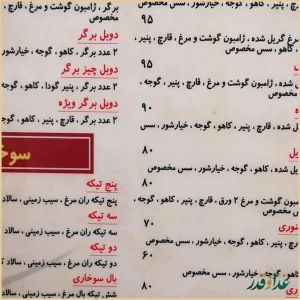 برگر ، ژامبون گوشت و مرغ ، قارچ ،
مخصوص
دوبل برگر
۲ عدد برگر ، کاهو ، گوجه ، خیارشور
دوبل چیز برگر
۲ عدد برگر ، پنیر گودا ، کاهو ، گوجه
دوبل برگر ویژه
۲ عدد برگر ، قارچ ، پنیر ، کاهو ، گوجه
سوخا
پنج تیکه
پنج تیکه ران مرغ ، سیب زمینی ، سالاد
سه تیکه
سه تیکه ران مرغ ، سیب زمینی ، سالاد
دو تیکه
دو تیکه ران مرغ ، سیب زمینی ، سالاد ک
بال سوخاری
شش تیکه بال مرغ ، سیب زمینی ، سالاد
، کاهو ، گوجه ، خیارشور ، سس
۹۵
رغ گریل شده ، ژامبون گوشت و مرغ ، قارچ ، پنیر ،
ه ، کاهو ، سس مخصوص
۹۵
شده ، ژامبون گوشت و مرغ ، قارچ ، پنیر ، کاهو ،
مخصوص
۹۰
شده ، قارچ ، پنیر ، کاهو ، گوجه ، خیارشور ، سس
یل
۸۰
یل شده ، کاهو ، گوجه ، خیارشور ، سس مخصوص
۸۰
مبون گوشت و مرغ ۲ ورق ، قارچ ، پنیر ، کاهو ، گوجه ،
س مخصوص
نوری
۷۰
کاهو ، گوجه ، خیارشور ، سس مخصوص
۶۰
کاهو ، گوجه ، خیارشور ، سس مخصوص
۸۰
غذا و قدر